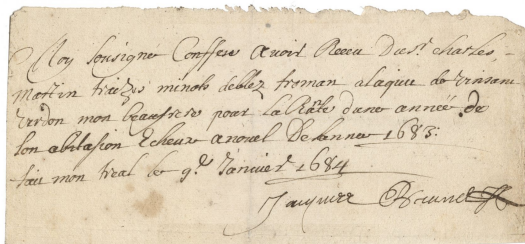 Moy Sousigne Confese avoir Receu du sr. charles
Martin treize minots de blez froman alaquit de
Tardon mon beaufrere pour la Rante dune annee de
son abitasion Echeue a nouel De Lannee 1683.
fait mon treal le 9e. Janvier 1684
Jacques